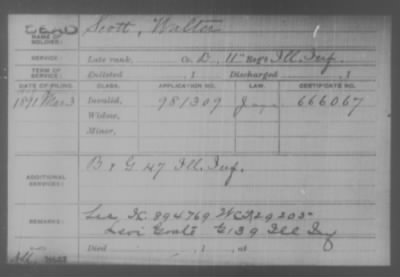 DEAD
NAME OF SOLDIER: Scott, Walter
SERVICE: Late rank, Co. D, 11" Reg't Ill. Inf.
TERM OF SERVICE: Enlisted , 1 Discharged , 1
DATE OF FILING. CLASS. APPLICATION NO. LAW. CERTIFICATE NO.
1891 Mar 3 Invalid, 981309 666067
Widow,
Minor,
ADDITIONAL SERVICES: B & G 47 Ill. Inf.
REMARKS: See K 894769 WC 729205
Levi G 139 Ill Inf
Died , 1 , at